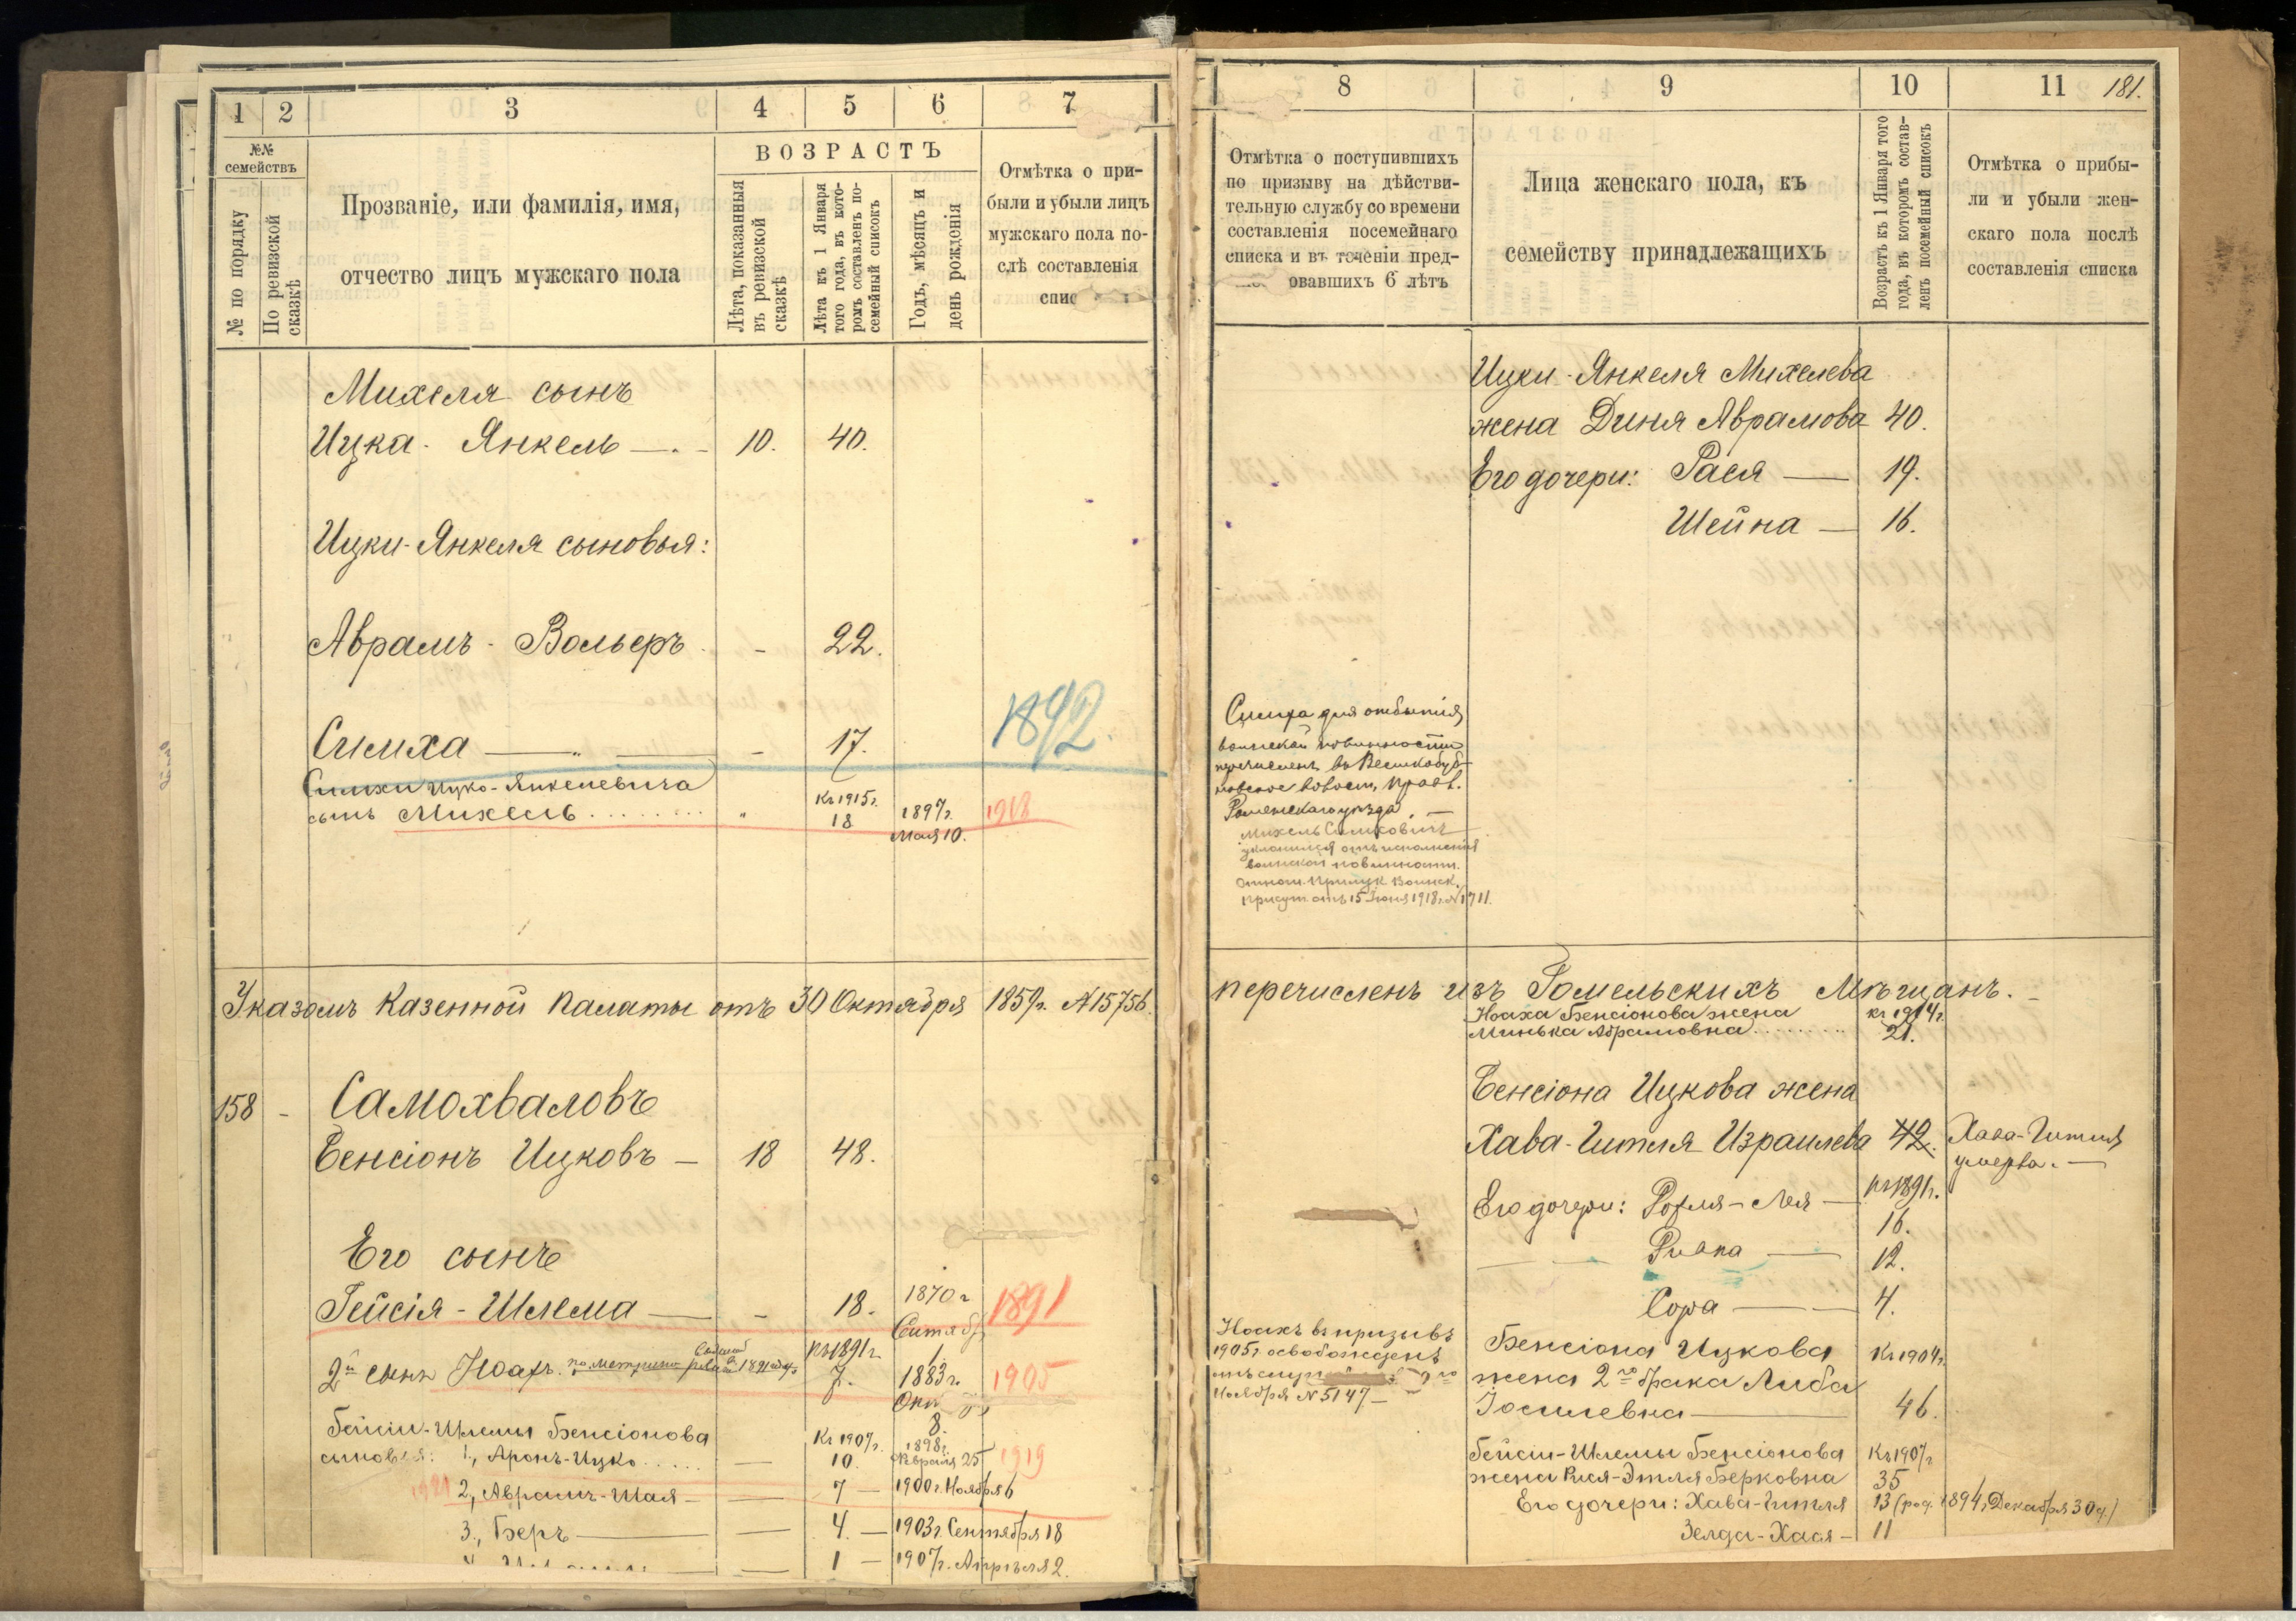 1 2 3 4 5 6 7
№№ семействъ
№ по порядку
По ревизской сказкѣ
Прозваніе, или фамилія, имя,
отчество лицъ мужскаго пола
ВОЗРАСТЪ
Лѣта, показанныя
въ ревизской
сказкѣ
Лѣта къ 1 Января
того года, въ кото-
ромъ составленъ по-
семейный списокъ
Годъ, мѣсяцъ и
день рожденія
Отмѣтка о при-
были и убыли лицъ
мужскаго пола по-
слѣ составленія
спис
Михеля сынъ
Ицка - Янкель — 10. 40.
Ицки-Янкеля сыновья:
Аврамъ - Вольеръ - 22.
Симха — - 17. 1892.
Симхи Ицко-Янкелевича
сынъ Михель " Къ 1915 г. 18 1897 г. Мая 10. 1918
Указомъ Казенной Палаты отъ 30 Октября 1859 г. № 15756.
158 - Самохваловъ
Бенсіонъ Ицковъ — 18 48.
Его сынъ
Гейсія - Шлема — - 18. 1870 г. Сентябр 1 1891
2й сынъ Ноахъ по метрич. 1891 Къ 1891 г. 7. 1883 г. 8. 1905
Гейсіи-Шлемы Бенсіонова Къ 1907 г.
сыновья: 1., Аронъ-Ицко — 10. 1898 г. Февраля 25 1919
1921 2, Аврамъ-Шая — 7 — 1900 г. Ноября 6
3., Беръ — 4. — 1903 г. Сентября 18
1 — 1907 г. Апрѣля 2.
8 9 10 11 181.
Отмѣтка о поступившихъ
по призыву на дѣйстви-
тельную службу со времени
составленія посемейнаго
списка и въ теченіи пред-
овавшихъ 6 лѣтъ
Лица женскаго пола, къ
семейству принадлежащихъ
Возрастъ къ 1 Января того
года, въ которомъ состав-
ленъ посемейный списокъ
Отмѣтка о прибы-
ли и убыли жен-
скаго пола послѣ
составленія списка
Ицки-Янкеля Михелева
жена Диня Аврамова 40.
Его дочери: Рася — 19.
Шейна — 16.
Симха для отбытія
воинской повинности
перечисленъ въ
волостн. Правл.
Роменскаго уѣзда. —
Михель Симховичъ
уклонился отъ исполненія
воинской повинности.
Отнош. Прилук. Воинск.
Присут. отъ 15 Іюня 1918 г. № 1711.
перечисленъ изъ Гомельскихъ Мѣщанъ. —
Ноаха Бенсіонова жена Къ 1914 г.
Минька Абрамовна 21.
Бенсіона Ицкова жена
Хава-Гитля Израилева 42. Хава-Гитля
умерла. —
Его дочери: Рохля-Лея — Къ 1891 г. 16.
Ривка — 12.
Сора — 4.
Ноахъ въ призывъ
1905 г. освобожденъ
Ноября № 5147 —
Бенсіона Ицкова Къ 1904 г.
жена 2го брака Либа
Іосилевна — 46.
Гейсіи-Шлемы Бенсіонова Къ 1907 г.
жена Рися-Этля Берковна 35
Его дочери: Хава-Гитля 13 (род. 1894 г. Декабря 30 д.)
Зелда-Хася — 11